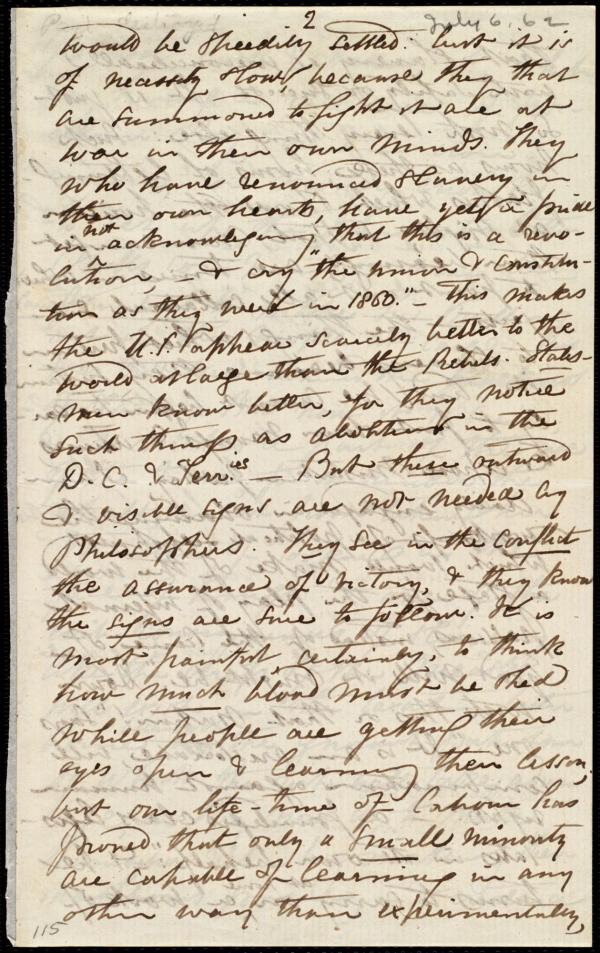 2
July 6, 62
would be speedily settled: but it is
of necessity slow, because they that
are summoned to fight it are at
war in their own minds. They
who have renounced slavery in
their own hearts, have yet a pride
in not acknowledging that this is a revo-
lution, - & cry "the union & constitu-
tion as they were in 1860." - This makes
the U.S. appear scarcely better to the
world at large than the Rebels. States-
men know better, for they notice
such things as abolition in the
D.C. & Terr.ies - But these outward
& visible signs are not needed by
Philosophers. They see in the conflict
the assurance of victory, & they know
the signs are sure to follow. It is
most painful, certainly, to think
how much blood must be shed
while people are getting their
eyes open & learning their lesson,
but our life-time of labour has
proved that only a small minority
are capable of learning in any
other way than experimentally,
115